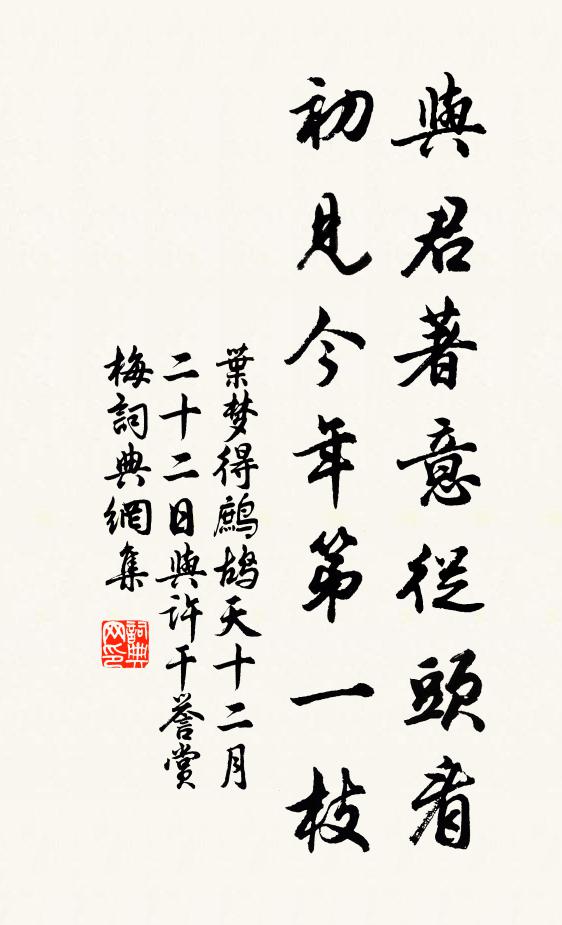 與君著意從頭看
初見今年第一枝
葉梦得鷓鴣天十二月
二十二日與許干誉賞
梅詞典網集
詞典网印